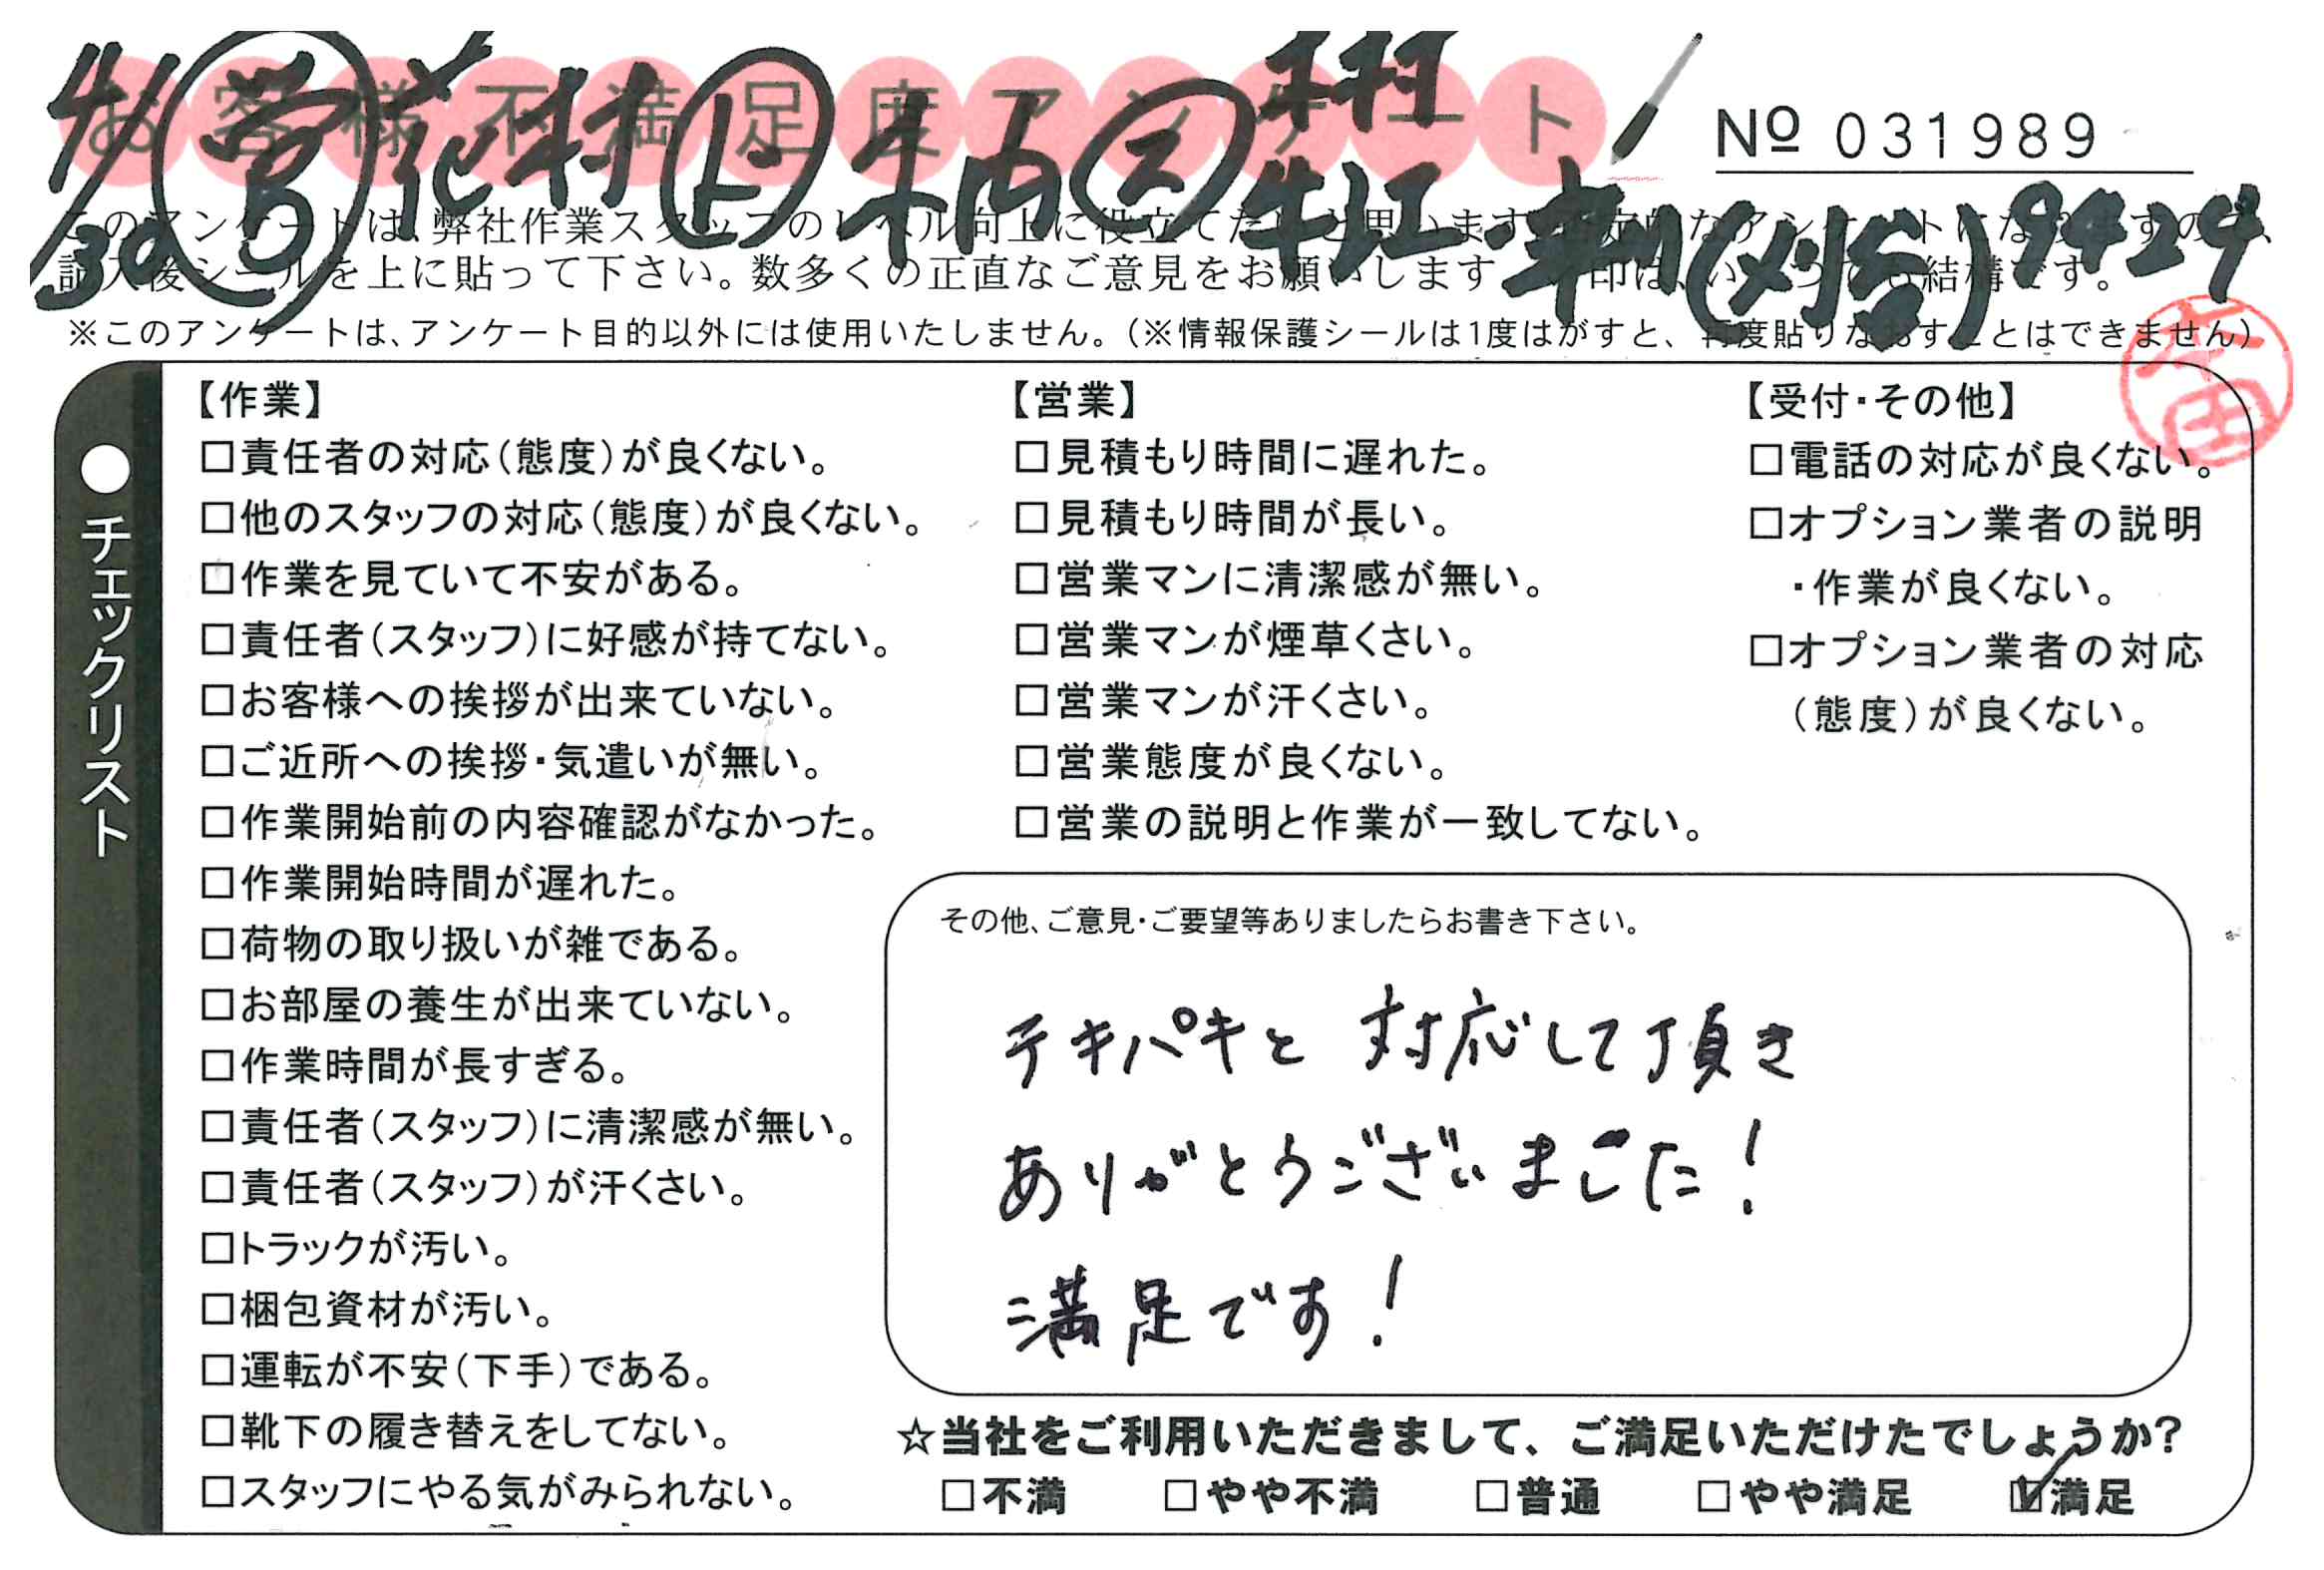 お客様不満足度アンケート
№ 031989
4/30 営 花村 ト 柄 ス
9424
※このアンケートは、アンケート目的以外には使用いたしません。(※情報保護シールは1度はがすと、再度貼りなおすことはできません)
●チェックリスト
【作業】
□責任者の対応(態度)が良くない。
□他のスタッフの対応(態度)が良くない。
□作業を見ていて不安がある。
□責任者(スタッフ)に好感が持てない。
□お客様への挨拶が出来ていない。
□ご近所への挨拶・気遣いが無い。
□作業開始前の内容確認がなかった。
□作業開始時間が遅れた。
□荷物の取り扱いが雑である。
□お部屋の養生が出来ていない。
□作業時間が長すぎる。
□責任者(スタッフ)に清潔感が無い。
□責任者(スタッフ)が汗くさい。
□トラックが汚い。
□梱包資材が汚い。
□運転が不安(下手)である。
□靴下の履き替えをしてない。
□スタッフにやる気がみられない。
【営業】
□見積もり時間に遅れた。
□見積もり時間が長い。
□営業マンに清潔感が無い。
□営業マンが煙草くさい。
□営業マンが汗くさい。
□営業態度が良くない。
□営業の説明と作業が一致してない。
【受付・その他】
□電話の対応が良くない。
□オプション業者の説明
・作業が良くない。
□オプション業者の対応
(態度)が良くない。
その他、ご意見・ご要望等ありましたらお書き下さい。
テキパキと 対応して頂き
ありがとうございました!
満足です!
☆当社をご利用いただきまして、ご満足いただけたでしょうか?
□不満 □やや不満 □普通 □やや満足 ☑満足